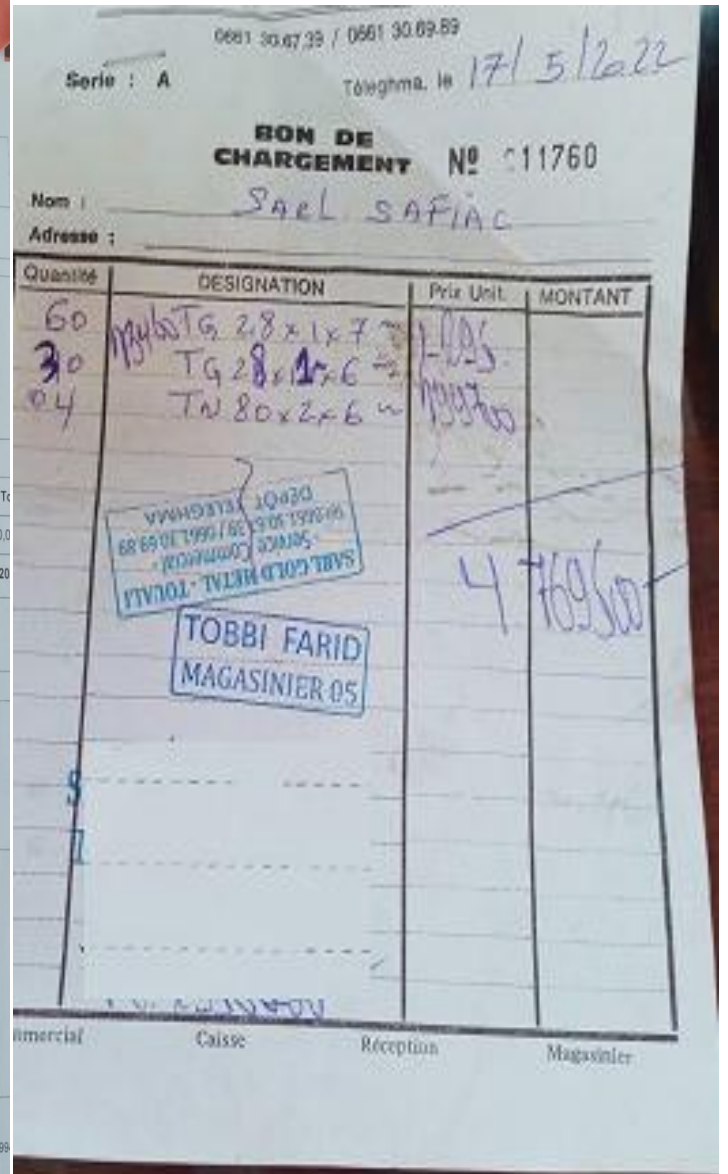 0661 30.67.39 / 0661 30.69.89
Serie : A
Téleghma, le 17/5/2022
BON DE
CHARGEMENT Nº 11760
Nom : SARL SAFIAC
Adresse :
Quantité DESIGNATION Prix Unit. MONTANT
60 TG 28 x 1 x 7
30 TG 28 x 1 x 6
04 TN 80 x 2 x 6
SARL GOLD METAL - TOUALI
- Service Commercial -
0661.30.69.89
DEPOT TELEGHMA
4 769600
TOBBI FARID
MAGASINIER 05
Caisse Réception Magasinier